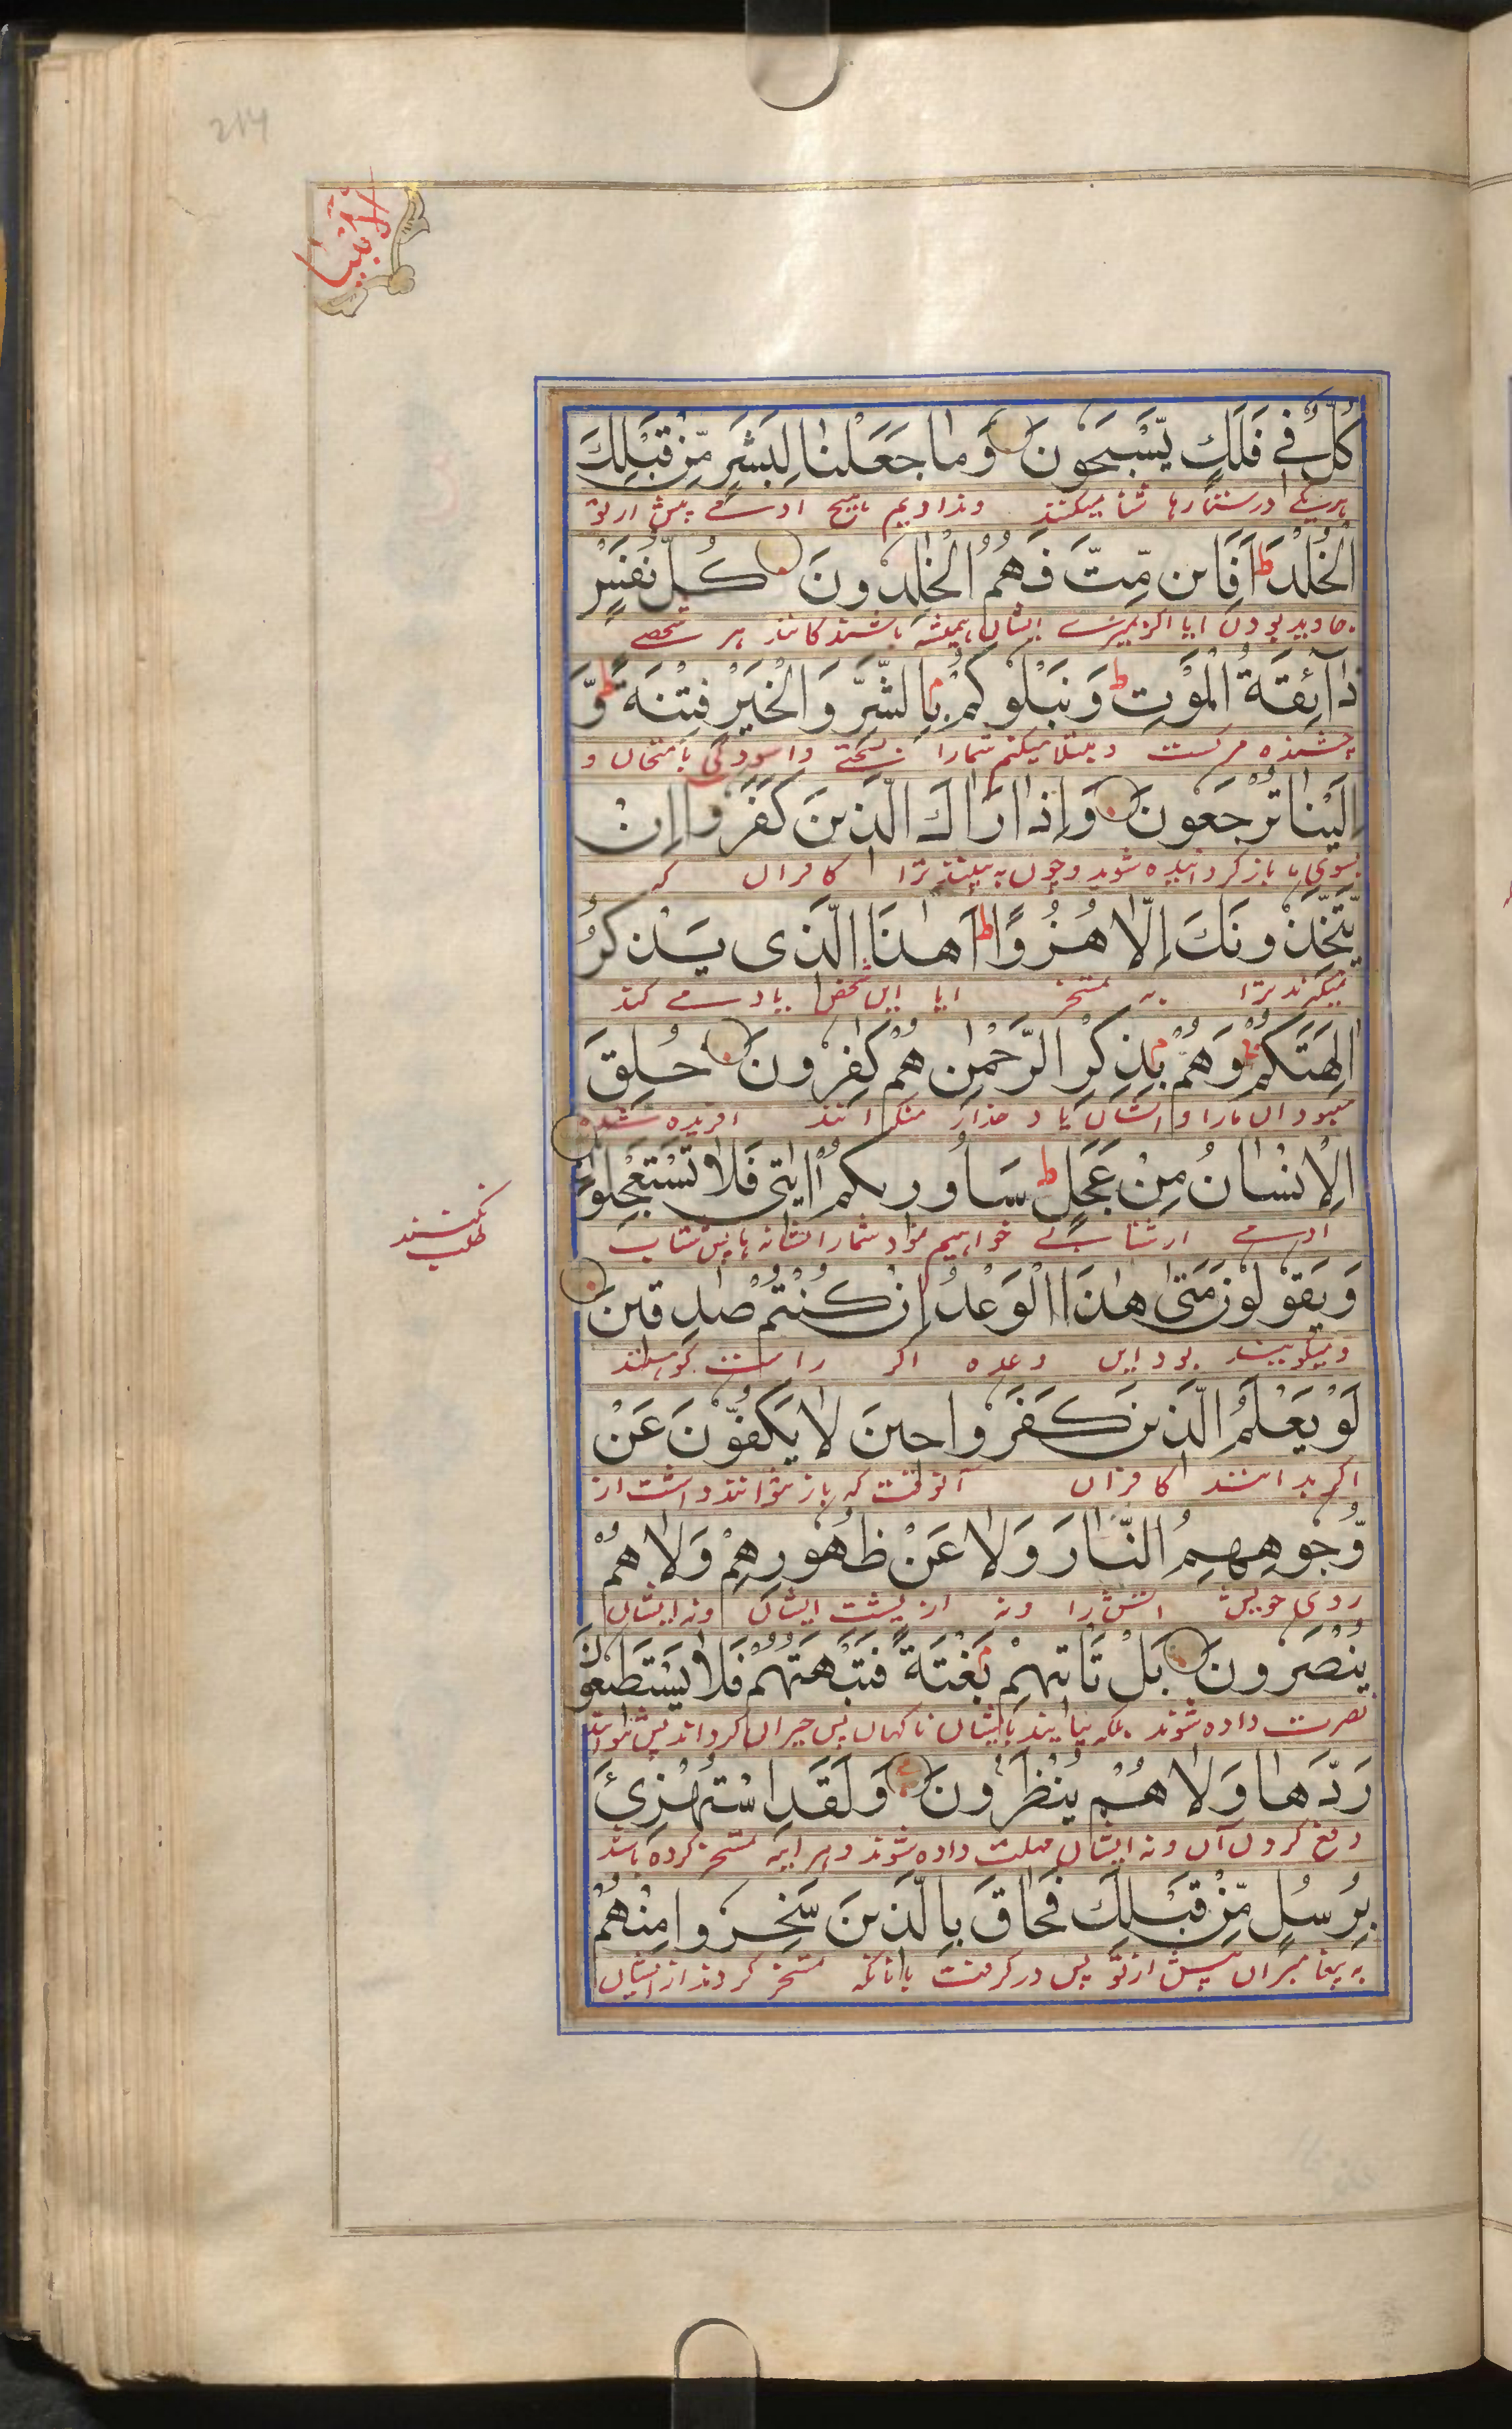 214
الأنبیا
كُلٌّ فِي فَلَكٍ يَّسْبَحُونَ وَمَا جَعَلْنَا لِبَشَرٍ مِّنْ قَبْلِكَ
ہریکے در ستارہا شنا میکنند وندادیم ہیچ ادمے پیش از تو
الْخُلْدَ ط اَفَائِن مِّتَّ فَهُمُ الْخٰلِدُونَ كُلُّ نَفْسٍ
جاوید بودن ایا اگر بمیرے ایشان ہمیشہ باشندکانند ہر شخصے
ذَآئِقَةُ الْمَوْتِ ط وَنَبْلُوكُمْ بِالشَّرِّ وَالْخَيْرِ فِتْنَةً ط وَّ
چشنده مرکست ومبتلا میکنم شمارا بسختے واسودگی بامتحان و
اِلَيْنَا تُرْجَعُونَ وَاِذَا رَاٰكَ الَّذِينَ كَفَرُوا اِنْ
بسوی ما بازکردانیده شوید وچون به بینند ترا کافران که
يَّتَّخِذُونَكَ اِلَّا هُزُوًا ط اَهٰذَا الَّذِى يَذْكُرُ
میکیرند ترا به تمسخر ایا این شخص یادمے کند
اٰلِهَتَكُمْ وَهُمْ بِذِكْرِ الرَّحْمٰنِ هُمْ كٰفِرُونَ خُلِقَ
معبودان مارا و ایشان یاد خدارا منکرانند افریده شده
الْاِنْسَانُ مِنْ عَجَلٍ ط سَاُورِيكُمْ اٰيٰتِى فَلَا تَسْتَعْجِلُونِ
ادمے از شتابے خواہیم نمود شمارا نشانہا پس شتاب
نکنند
طلب
وَيَقُولُونَ مَتٰى هٰذَا الْوَعْدُ اِنْ كُنْتُمْ صٰدِقِينَ
ومیکویند بود این وعده اکر راست کوہستند
لَوْ يَعْلَمُ الَّذِينَ كَفَرُوا حِينَ لَا يَكُفُّونَ عَنْ
اکر بدانستند کافران آنوقت که باز نتوانند داشت از
وُّجُوهِهِمُ النَّارَ وَلَا عَنْ ظُهُورِهِمْ وَلَا هُمْ
روی خویش اتش را ونه از پشت ایشان ونه ایشان
يُنْصَرُونَ بَلْ تَاتِيهِمْ بَغْتَةً فَتَبْهَتُهُمْ فَلَا يَسْتَطِيعُونَ
نصرت داده شوند بلکه بیایند بایشان ناکہان پس حیران کرداند پس نتوانند
رَدَّهَا وَلَا هُمْ يُنْظَرُونَ وَلَقَدِ اسْتُهْزِئَ
دفع کردن آن ونه ایشان مہلت داده شوند وہر اینہ تمسخر کرده باشد
بِرُسُلٍ مِّنْ قَبْلِكَ فَحَاقَ بِالَّذِينَ سَخِرُوا مِنْهُمْ
به پیغامبران پیش از تو پس در کرفت بانانکه تمسخر کردند از ایشان